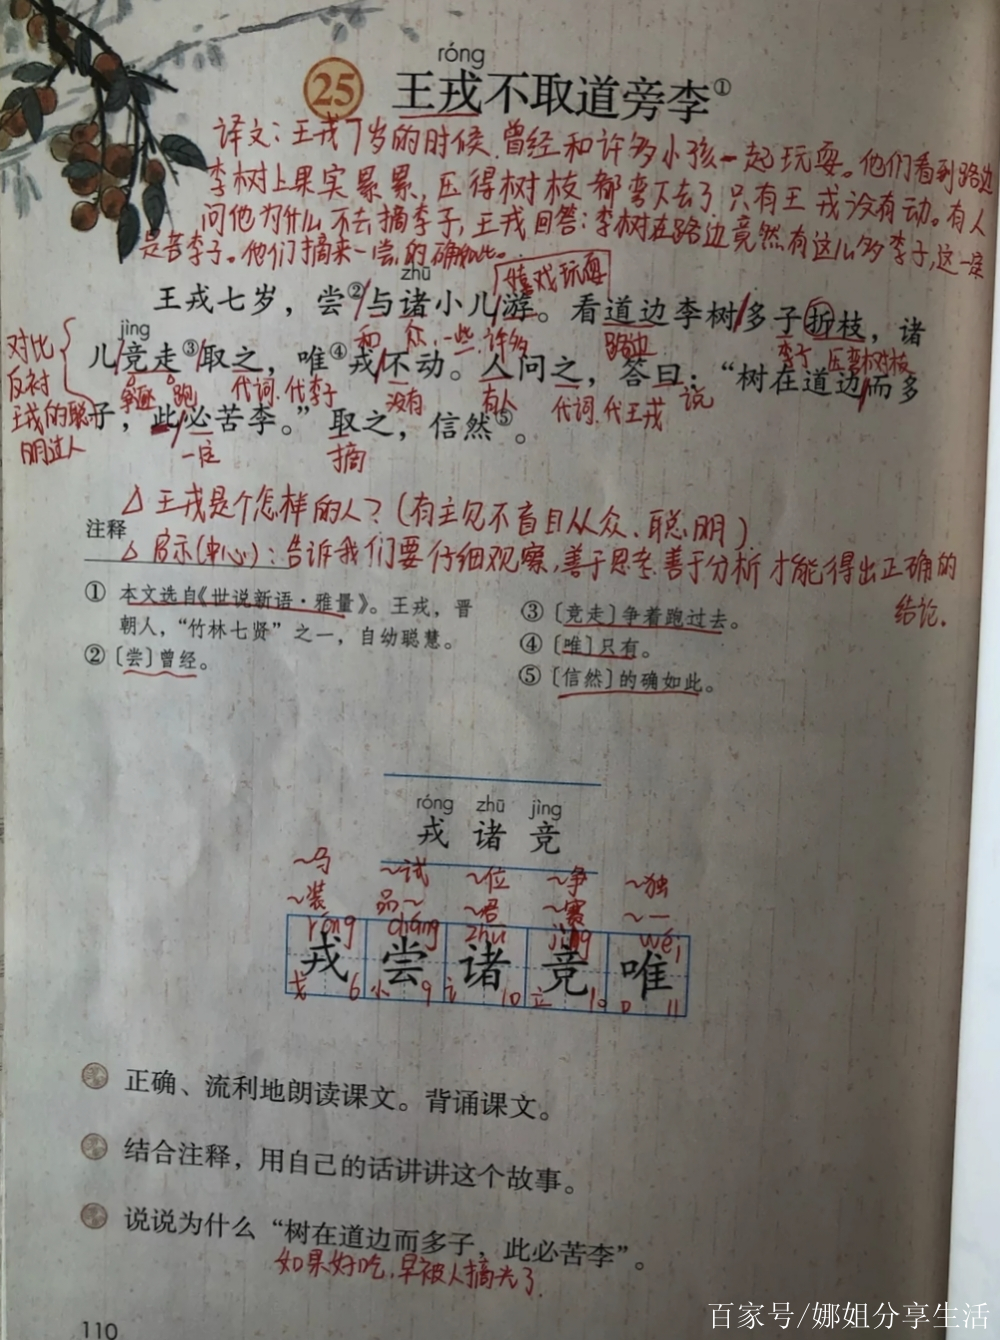 róng
25 王戎不取道旁李①
译文：王戎7岁的时候，曾经和许多小孩一起玩耍。他们看到路边
李树上果实累累，压得树枝都弯下去了，只有王戎没有动。有人
问他为什么不去摘李子，王戎回答：李树在路边竟然有这么多李子，这一定
是苦李子。他们摘来一尝，的确如此。
zhū
嬉戏玩耍
王戎七岁，尝②/与诸小儿/游。看道边李树/多子折枝，诸
和 众，一些，许多 路边 李子 压弯树枝
jìng
儿/竞走③/取之，唯④戎/不动。人问之，答曰：“树在道边/而多
争逐 跑 代词.代李子 没有 有人 代词.代王戎 说
子，此/必苦李。”取之，信然⑤。
一定 摘
对比
反衬
王戎的聪
明过人
△ 王戎是个怎样的人？（有主见不盲目从众、聪明）
注释
△ 启示（中心）：告诉我们要仔细观察，善于思考、善于分析才能得出正确的
结论.
① 本文选自《世说新语·雅量》。王戎，晋
朝人，“竹林七贤”之一，自幼聪慧。
② 〔尝〕曾经。
③ 〔竞走〕争着跑过去。
④ 〔唯〕只有。
⑤ 〔信然〕的确如此。
róng zhū jìng
戎 诸 竞
~马 ~试 ~位 ~争 ~独
~装 品~ ~君 ~赛 ~一
róng cháng zhū jìng wéi
戎 尝 诸 竞 唯
戈 6 小 9 讠 10 立 10 口 11
正确、流利地朗读课文。背诵课文。
结合注释，用自己的话讲讲这个故事。
说说为什么“树在道边而多子，此必苦李”。
如果好吃，早被人摘光了.
110
百家号/娜姐分享生活